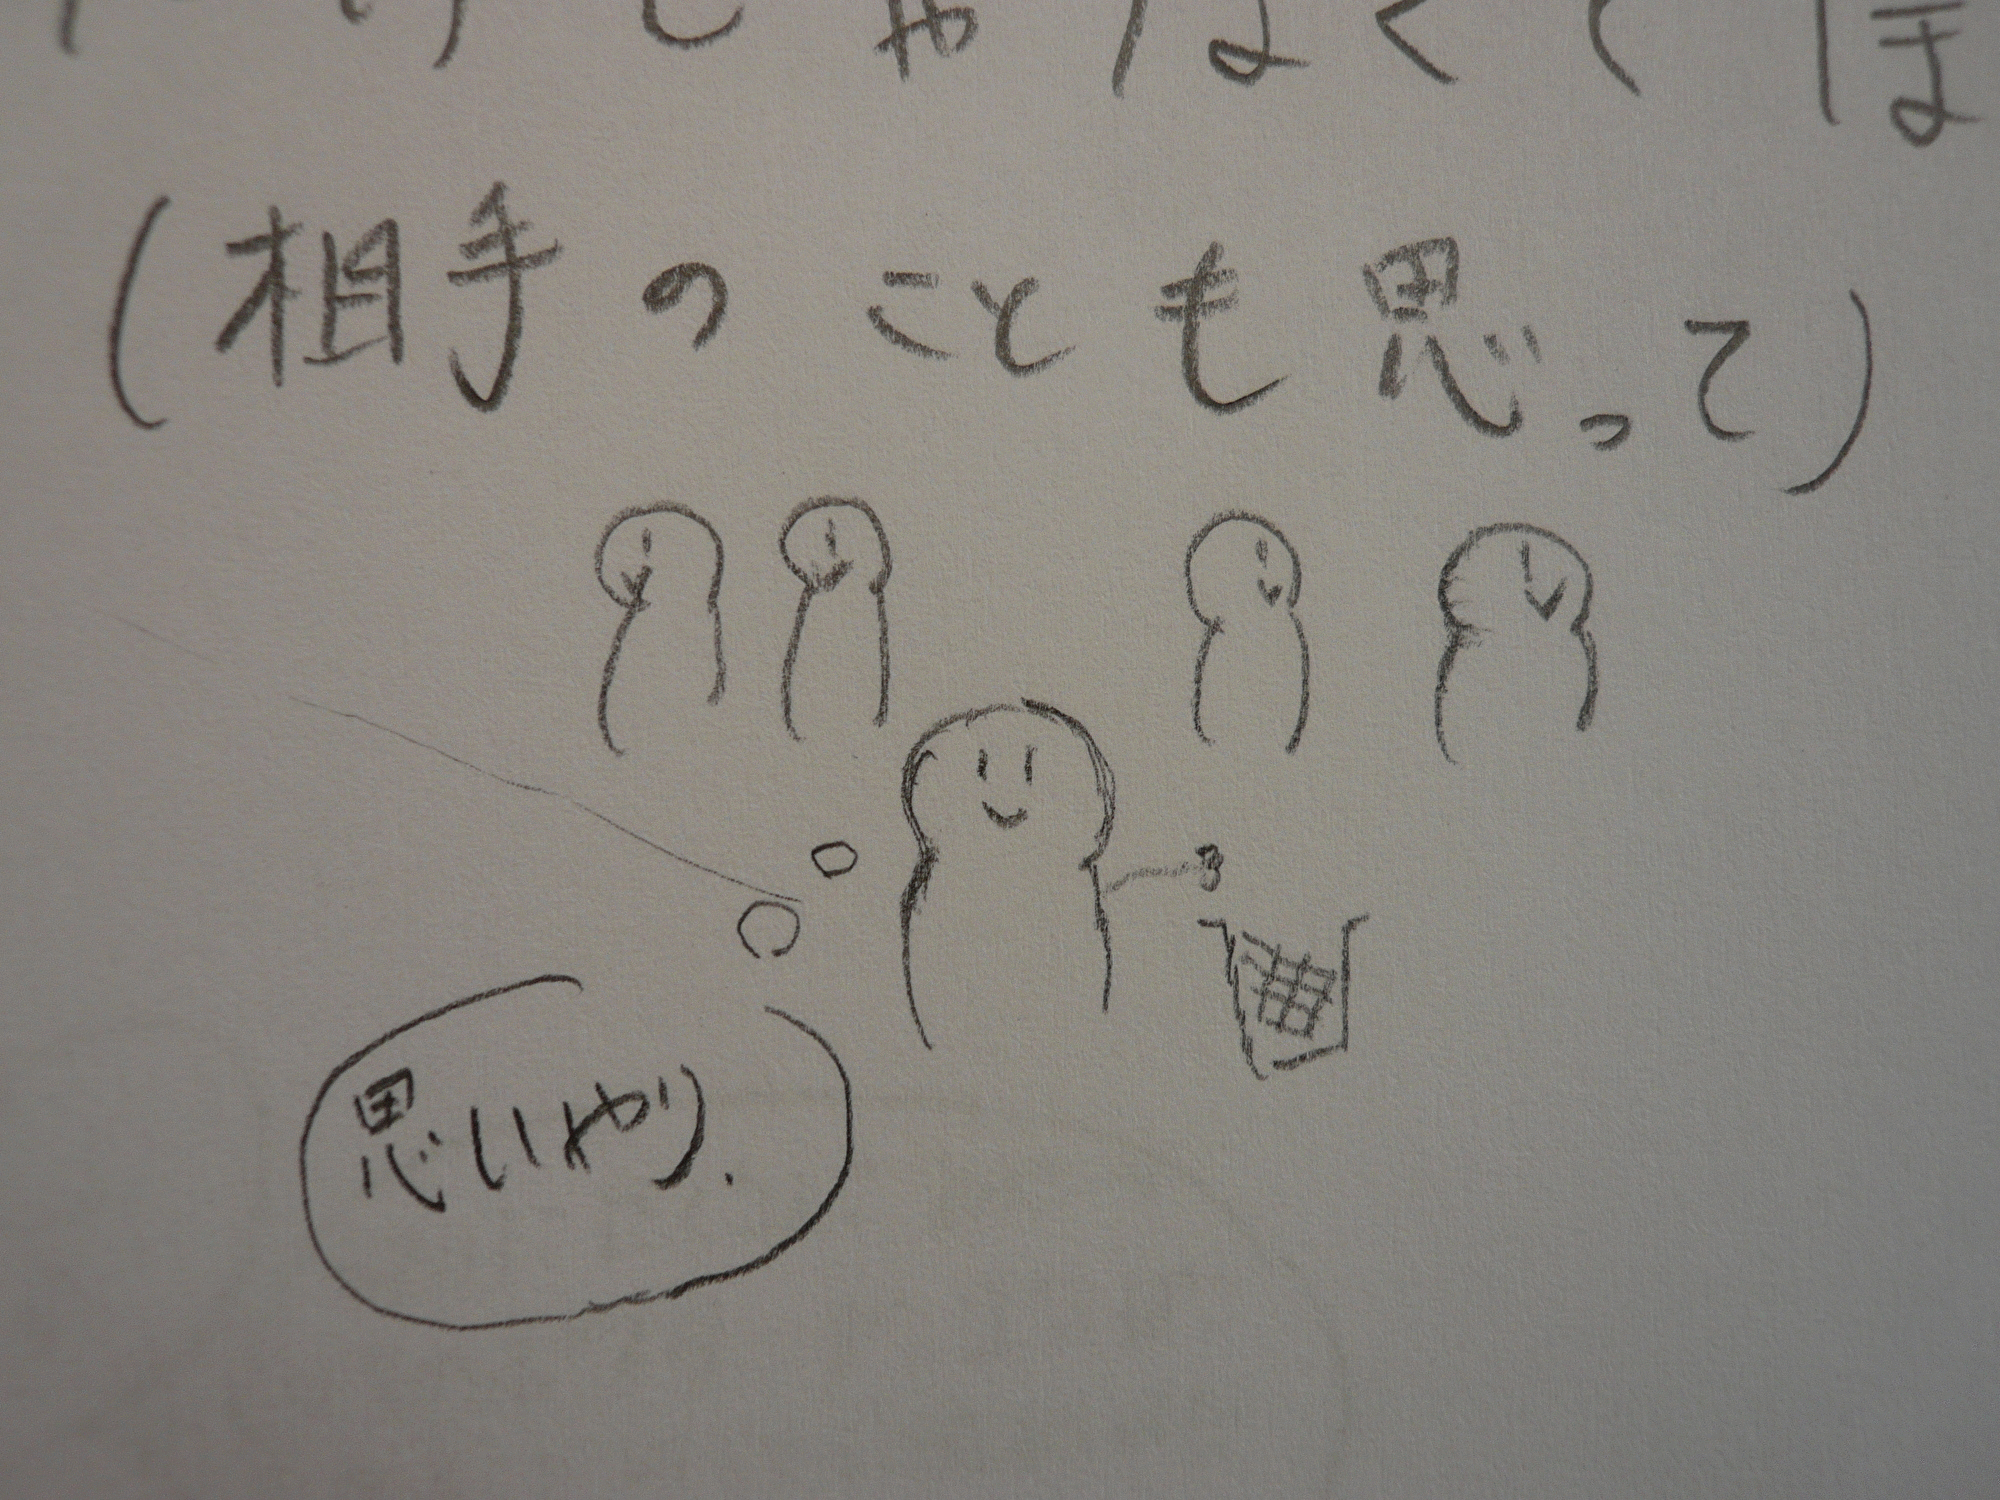 だけじゃなくてほ
(相手のことも思って)
思いやり.